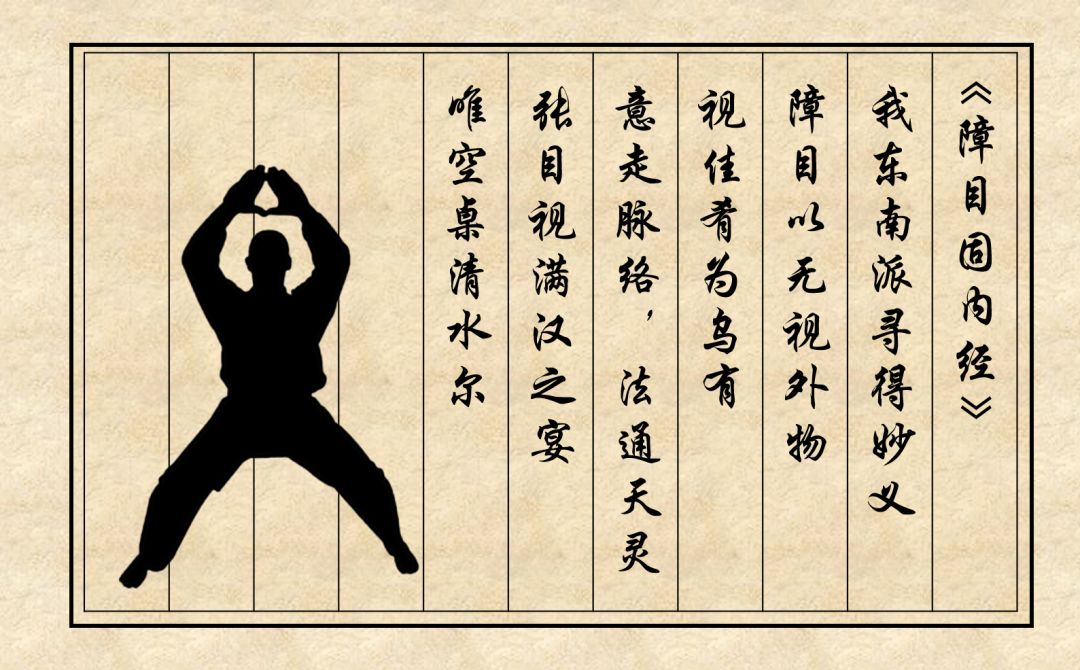 《障目固内经》
我东南派寻得妙义
障目以无视外物
视佳肴为乌有
意走脉络，法通天灵
张目视满汉之宴
唯空桌清水尔